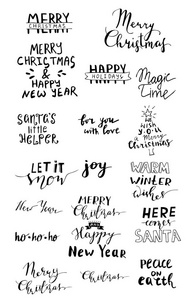 MERRY
CHRISTMAS
Merry
Christmas
MERRY
CHRICTMAS
&
HAPPY
NEW YEAR
HAPPY
HOLIDAYS
Magic
Time
SANTA'S
little
HELPER
for you
with love
WISH
YOU
Merry
Christmas
LET IT
Snow
joy
WARM
WINTER
wishes
New Year
MERRY
Christmas
and
Happy
New Year
HERE
comes
SANTA
ho-ho-ho
Merry
Christmas
Christmas
peace
on
earth